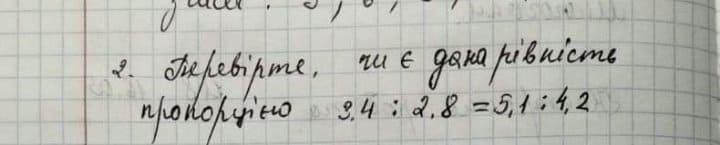 2. Перевірте, чи є дана рівність
пропорцією 3,4 : 2,8 = 5,1 : 4,2